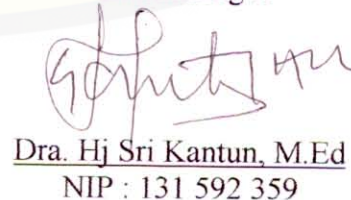 Dra. Hj Sri Kantun, M.Ed
NIP : 131 592 359